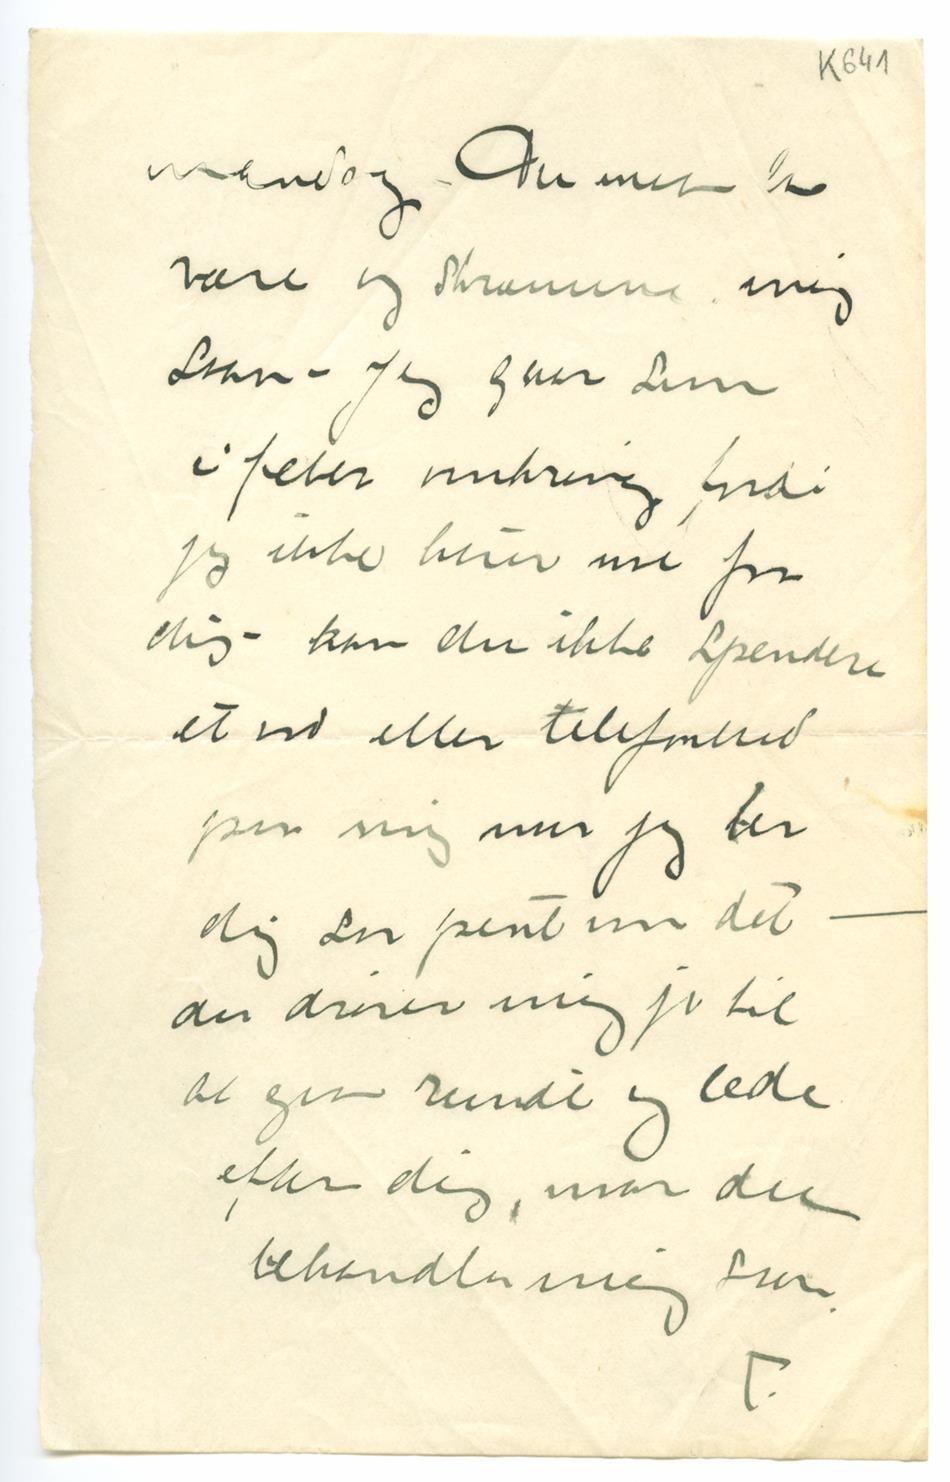 K641
mandag - Du maa la
være og skræmme mig
saan - Jeg gaar som
i feber omkring, fordi
jeg ikke hører noe fra
dig - kan du ikke spendere
et ord eller telefonbud
paa mig naar jeg ber
dig saa pent om det —
du driver mig jo til
at gaa rundt og lede
efter dig, naar du
behandler mig saan.
T.